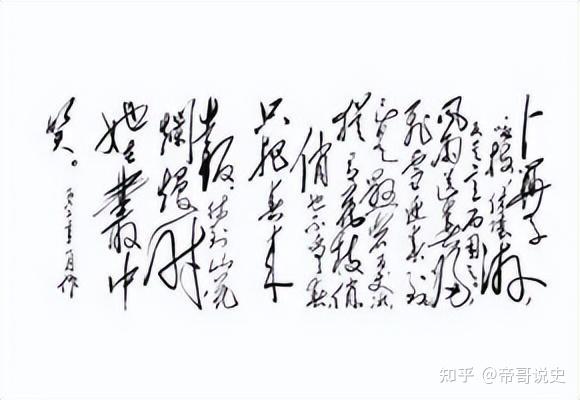 卜算子
咏梅，读陆游，
反其意而用之。
风雨送春归，
飞雪迎春到。
已是悬崖百丈冰，
犹有花枝俏。
俏也不争春，
只把春来
报，待到山花
烂熳时，
她在丛中
笑。
知乎 @帝哥说史